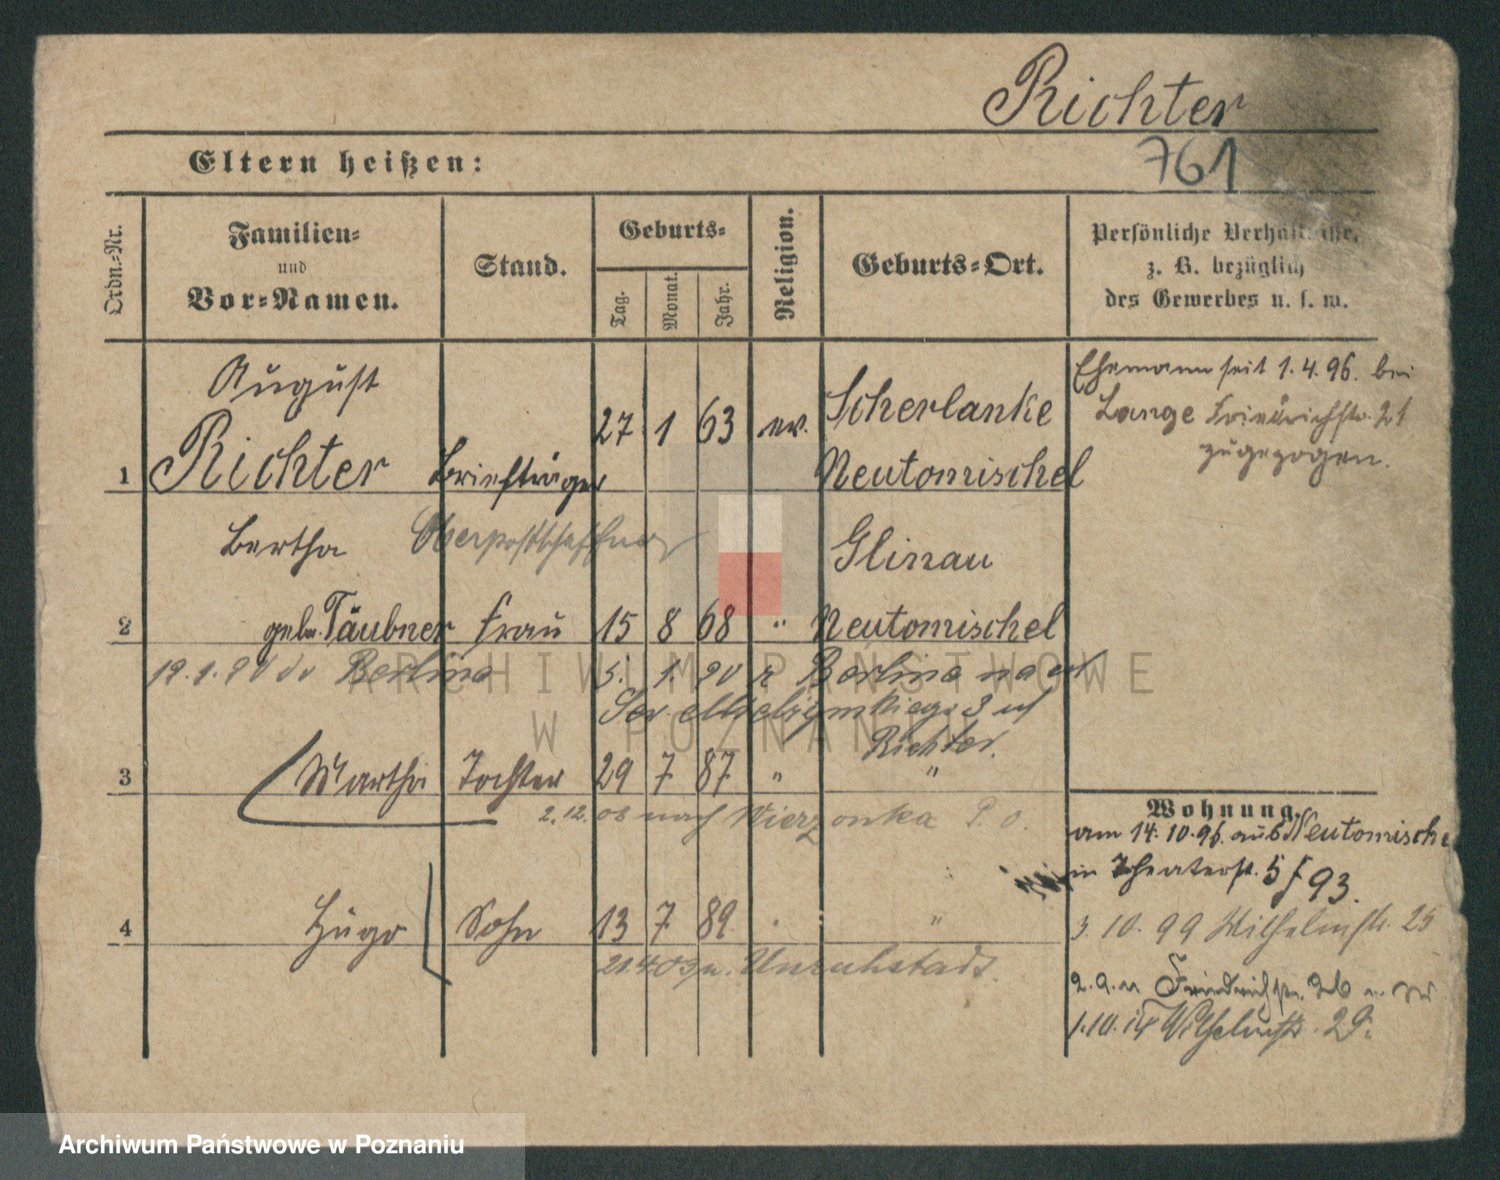 Richter
761
Eltern heißen:
Ordn.-Nr.
Familien-
und
Vor-Namen.
Stand.
Geburts-
Tag.
Monat.
Jahr.
Religion.
Geburts-Ort.
Persönliche Verhältnisse,
z. B. bezüglich
des Gewerbes u. s. w.
August
1 Richter Briefträger 27 1 63 ev. Scherlanke
Neutomischel
Ehemann seit 1.4.96. bei
Lange Friedrichstr. 21
zugezogen.
Bertha Oberpostschaffner Glinau
2 geb. Täubner Frau 15 8 68 " Neutomischel
19.1.20 Berlina 5. 1. 20 z Berlina
3 uf
Richter.
3 Martha Tochter 29 7 87 " "
2.12. 08 nach Wierzonka P. O.
4 Hugo Sohn 13 7 89 "
n. Unruhstadt.
Wohnung.
am 14.10.96. aus Neutomischel
in Theaterstr. 5 f 93.
3. 10. 99 Wilhelmstr. 25
Friedrichstr.
1.10.14 Wilhelmstr. 29.
ARCHIWUM PAŃSTWOWE
W POZNANIU
Archiwum Państwowe w Poznaniu